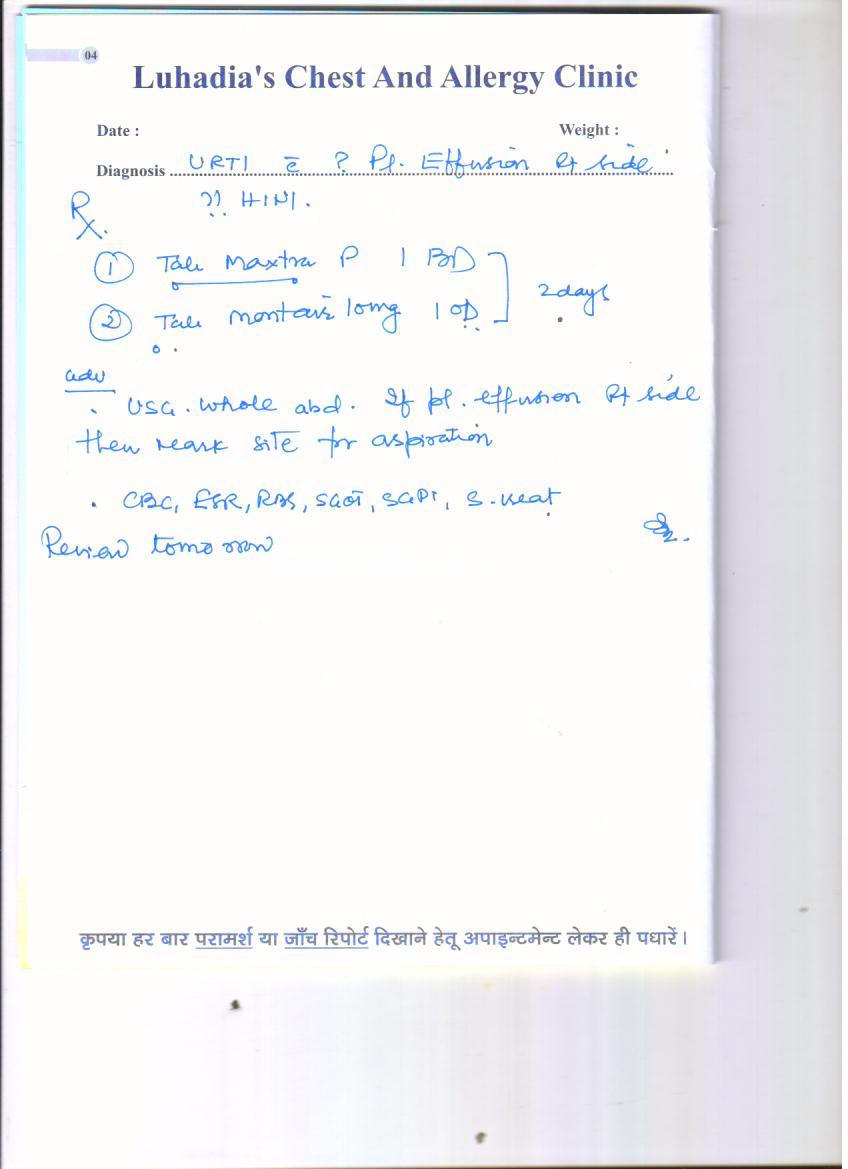 04
Luhadia's Chest And Allergy Clinic
Date : Weight :
Diagnosis URTI c̄ ? Pl. Effusion Rt side
?? H1N1.
Rx.
① Tab Maxtra P 1 BD
② Tab Montair 10mg 1 OD ] 2 days
adv
. USG. Whole abd. If pl. effusion Rt side
then mark site for aspiration
. CBC, ESR, RBS, SGOT, SGPT, S.
Review tomorrow
कृपया हर बार परामर्श या जाँच रिपोर्ट दिखाने हेतू अपाइन्टमेन्ट लेकर ही पधारें।